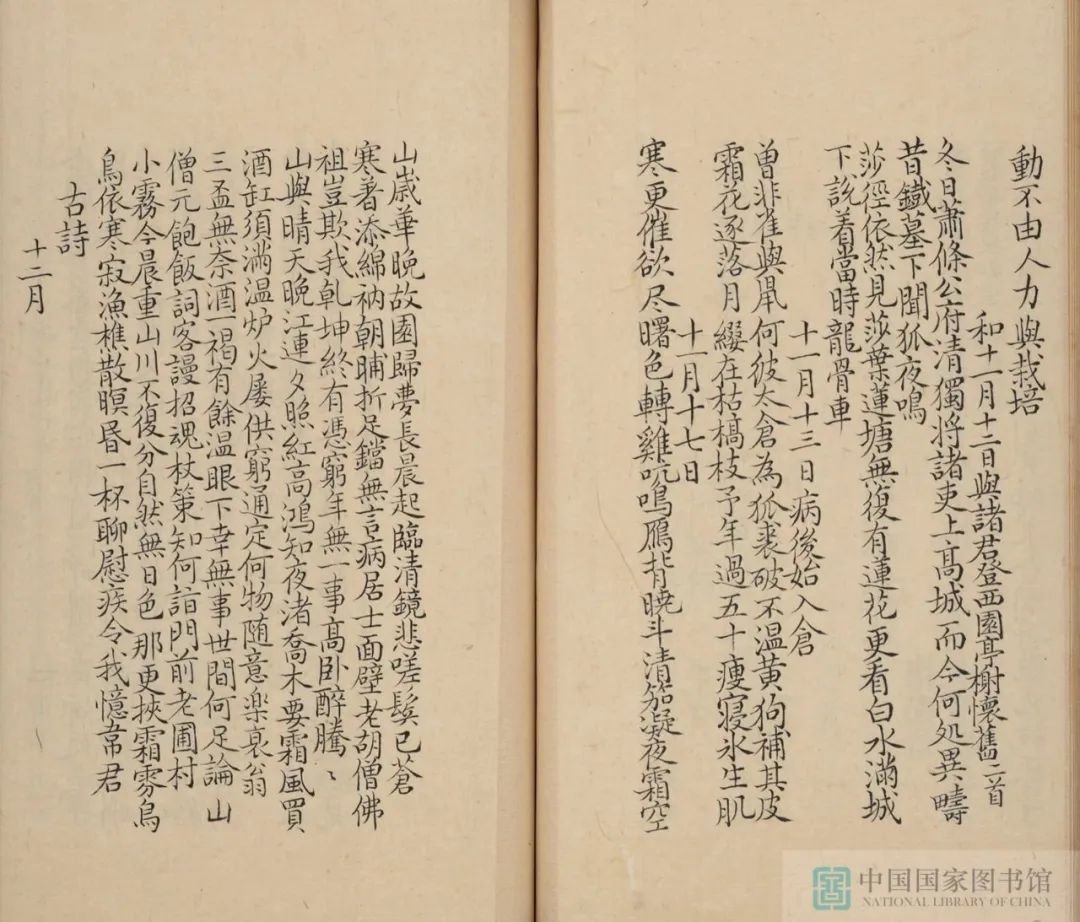 動不由人力與栽培
和十一月十二日與諸君登西園亭榭懷舊二首
冬日蕭條公府清獨將諸吏上髙城而今何処異疇
昔鐵墓下聞狐夜鳴
莎徑依然見莎葉蓮塘無復有蓮花更看白水滿城
下説着當時龍骨車
十一月十三日病後始入倉
曽非雀與鼠何彼太倉為狐裘破不温黄狗補其皮
霜花逐落月綴在枯槁枝予年過五十痩寝氷生肌
十一月十七日
寒更催欲尽曙色轉雞吭鳴鴈背曉斗清笳凝夜霜空
山歳華晚故園歸夢長晨起臨清鏡悲嗟鬂已蒼
寒着添綿衲朝晡折足鐺無言病居士面壁老胡僧佛
祖豈欺我乹坤終有憑窮年無一事髙卧醉騰〻
山與晴天晚江連夕照紅高鴻知夜渚喬木要霜風買
酒缸須滿温炉火屡供窮通定何物随意楽衰翁
三盃無奈酒一褐有餘温眼下幸無事世間何足論山
僧元飽飯詞客謾招魂杖策知何詣門前老圃村
小霧今晨重山川不復分自然無日色那更挾霜雰烏
鳥依寒寂漁樵散暝昏一杯聊慰疾令我憶常君
古詩
十二月
中国国家图书馆
NATIONAL LIBRARY OF CHINA